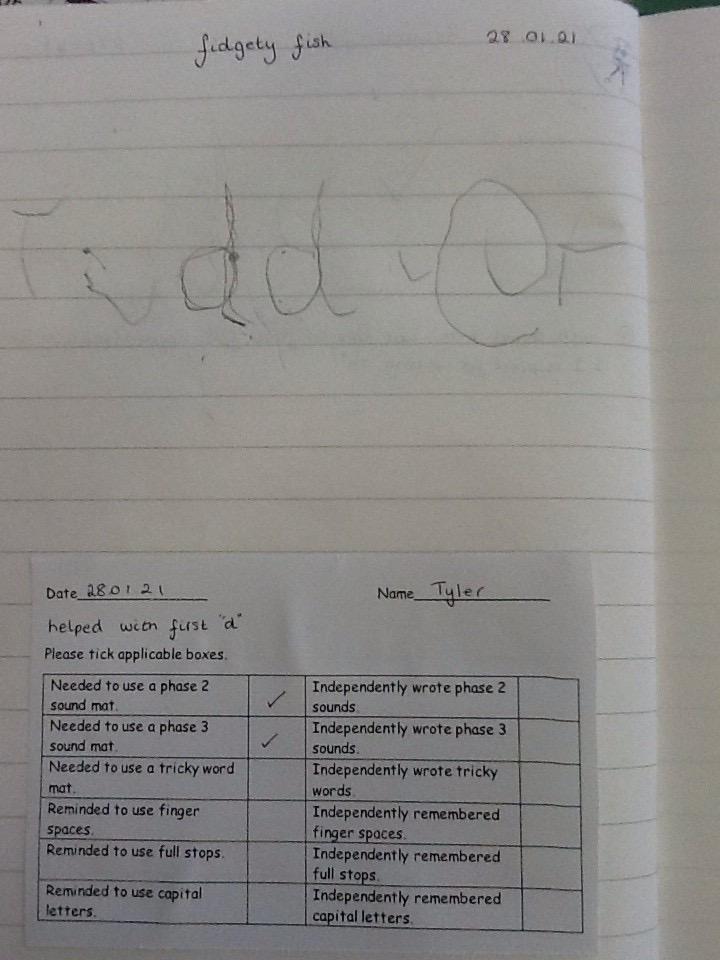 fidgety fish 28.01.21
Date 28.01 21 Name Tyler
helped with first "d"
Please tick applicable boxes.
Needed to use a phase 2 sound mat. ✓ Independently wrote phase 2 sounds.
Needed to use a phase 3 sound mat. ✓ Independently wrote phase 3 sounds.
Needed to use a tricky word mat. Independently wrote tricky words.
Reminded to use finger spaces. Independently remembered finger spaces.
Reminded to use full stops. Independently remembered full stops.
Reminded to use capital letters. Independently remembered capital letters.